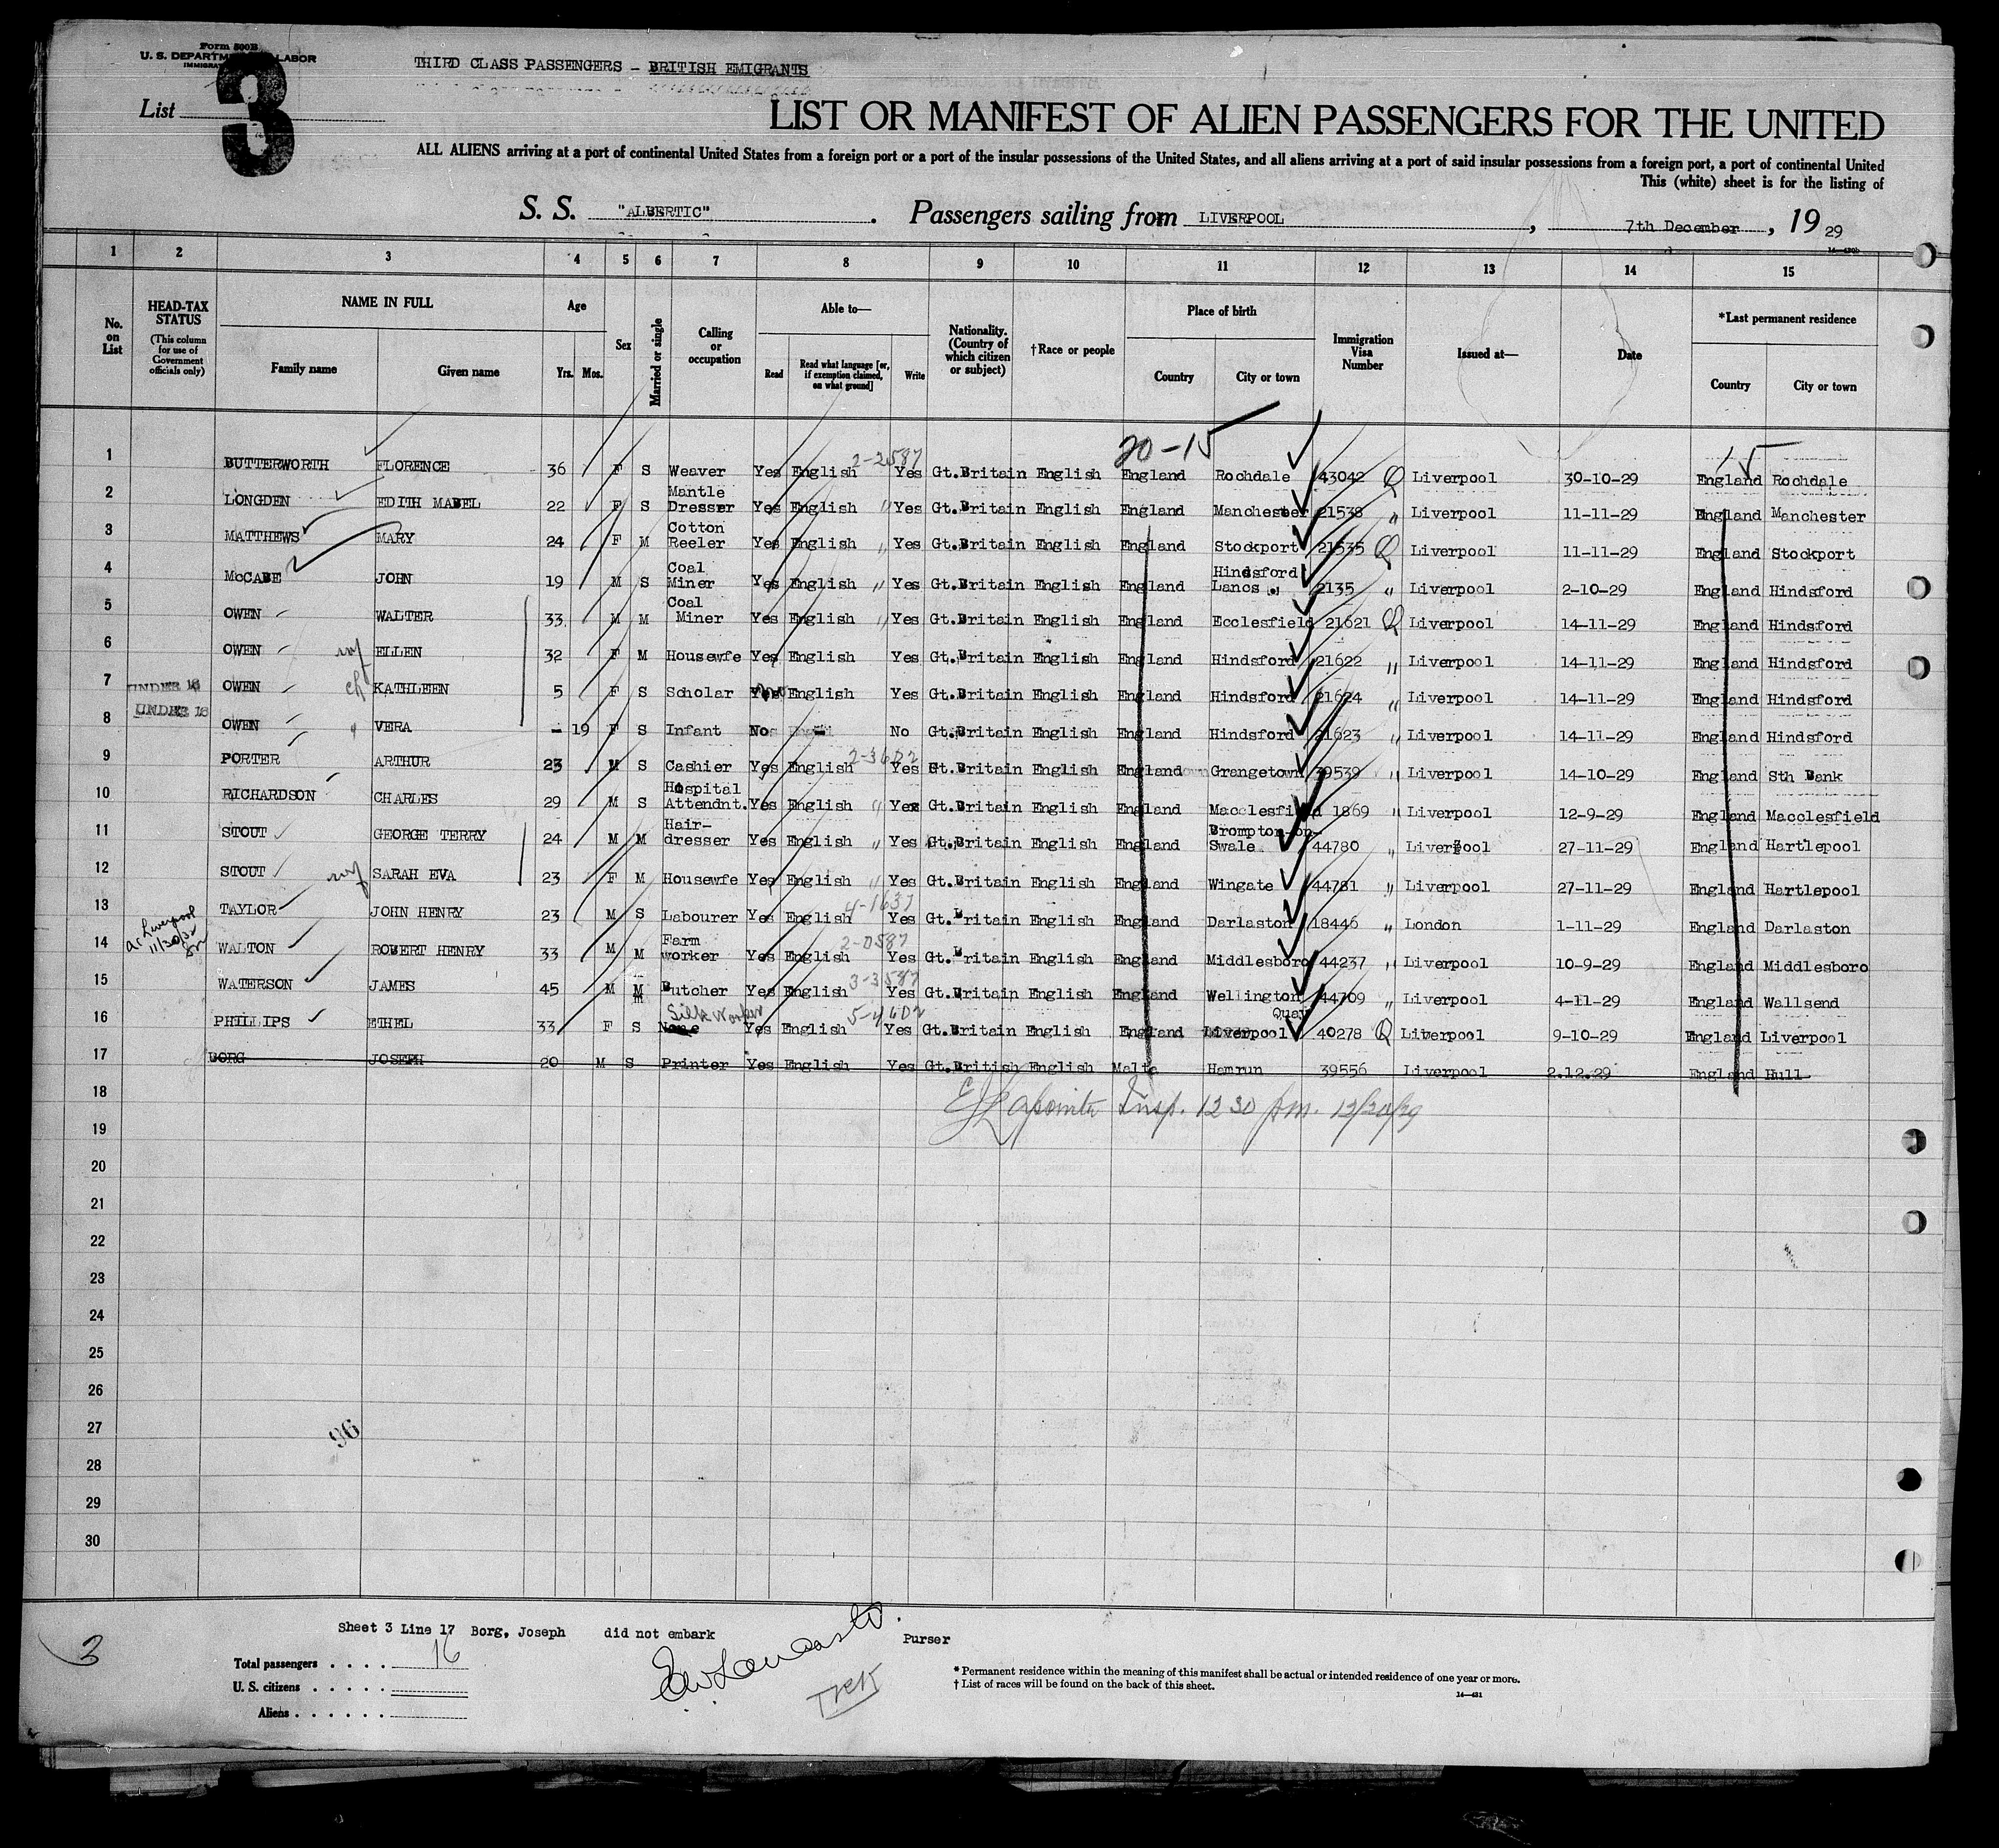 Form 500B
U. S. DEPARTMENT LABOR
THIRD CLASS PASSENGERS - BRITISH EMIGRANTS
List 3
LIST OR MANIFEST OF ALIEN PASSENGERS FOR THE UNITED
ALL ALIENS arriving at a port of continental United States from a foreign port or a port of the insular possessions of the United States, and all aliens arriving at a port of said insular possessions from a foreign port, a port of continental United
This (white) sheet is for the listing of
S. S. "ALBERTIC" . Passengers sailing from LIVERPOOL , 7th December , 19 29
1 2 3 4 5 6 7 8 9 10 11 12 13 14 15
No. on List
HEAD-TAX STATUS (This column for use of Government officials only)
NAME IN FULL Family name Given name
Age Yrs. Mos.
Sex
Married or single
Calling or occupation
Able to— Read Read what language [or, if exemption claimed, on what ground] Write
Nationality. (Country of which citizen or subject)
†Race or people
Place of birth Country City or town
Immigration Visa Number
Issued at—
Date
*Last permanent residence Country City or town
20-15 15
1 BUTTERWORTH FLORENCE 36 F S Weaver Yes English 2-2587 Yes Gt.Britain English England Rochdale 43042 Q Liverpool 30-10-29 England Rochdale
2 LONGDEN EDITH MABEL 22 F S Mantle Dresser Yes English " Yes Gt.Britain English England Manchester 21538 " Liverpool 11-11-29 England Manchester
3 MATTHEWS MARY 24 F M Cotton Reeler Yes English " Yes Gt.Britain English England Stockport 21535 Q Liverpool 11-11-29 England Stockport
4 McCABE JOHN 19 M S Coal Miner Yes English " Yes Gt.Britain English England Hindsford Lancs. 2135 " Liverpool 2-10-29 England Hindsford
5 OWEN WALTER 33 M M Coal Miner Yes English " Yes Gt.Britain English England Ecclesfield 21621 Q Liverpool 14-11-29 England Hindsford
6 OWEN wf ELLEN 32 F M Housewfe Yes English Yes Gt.Britain English England Hindsford 21622 " Liverpool 14-11-29 England Hindsford
7 UNDER 16 OWEN ch KATHLEEN 5 F S Scholar No English Yes Gt.Britain English England Hindsford 21624 " Liverpool 14-11-29 England Hindsford
8 UNDER 16 OWEN " VERA - 19 F S Infant No - No Gt.Britain English England Hindsford 21623 " Liverpool 14-11-29 England Hindsford
9 PORTER ARTHUR 23 M S Cashier Yes English 2-3602 Yes Gt.Britain English England Grangetown 39539 " Liverpool 14-10-29 England Sth Bank
10 RICHARDSON CHARLES 29 M S Hospital Attendnt. Yes English " Yes Gt.Britain English England Macclesfield 1869 " Liverpool 12-9-29 England Macclesfield
11 STOUT GEORGE TERRY 24 M M Hair-dresser Yes English " Yes Gt.Britain English England Brompton-on-Swale 44780 " Liverpool 27-11-29 England Hartlepool
12 STOUT wf SARAH EVA 23 F M Housewfe Yes English " Yes Gt.Britain English England Wingate 44781 " Liverpool 27-11-29 England Hartlepool
13 TAYLOR JOHN HENRY 23 M S Labourer Yes English 4-1637 Yes Gt.Britain English England Darlaston 18446 " London 1-11-29 England Darlaston
14 Liverpool 11/30/32 WALTON ROBERT HENRY 33 M M Farm worker Yes English 2-0587 Yes Gt.Britain English England Middlesboro 44237 " Liverpool 10-9-29 England Middlesboro
15 WATERSON JAMES 45 M M Butcher Yes English 3-3587 Yes Gt.Britain English England Wellington Quay 44709 " Liverpool 4-11-29 England Wallsend
16 PHILLIPS ETHEL 33 F S None Silk Worker Yes English 5-4602 Yes Gt.Britain English England Liverpool 40278 Q Liverpool 9-10-29 England Liverpool
17 BORG JOSEPH 20 M S Printer Yes English Yes Gt.British English Malta Hamrun 39556 Liverpool 2.12.29 England Hull
18 Insp. 12 30 pm. 12/20/29
19
20
21
22
23
24
25
26
27
28
29
30
96
Sheet 3 Line 17 Borg, Joseph did not embark
Purser
3
Total passengers . . . . 16
U. S. citizens . . . . .
Aliens . . . . . .
* Permanent residence within the meaning of this manifest shall be actual or intended residence of one year or more.
† List of races will be found on the back of this sheet.